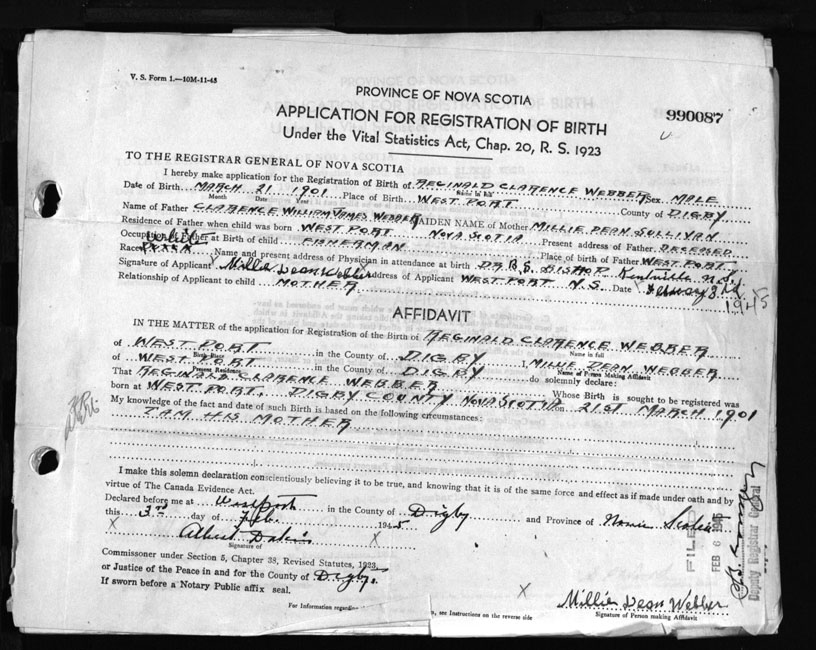 V. S. Form 1.—10M-11-43
PROVINCE OF NOVA SCOTIA
990087
APPLICATION FOR REGISTRATION OF BIRTH
Under the Vital Statistics Act, Chap. 20, R. S. 1923
TO THE REGISTRAR GENERAL OF NOVA SCOTIA
I hereby make application for the Registration of Birth of REGINALD CLARENCE WEBBER Sex MALE
Date of Birth MARCH 21 1901 Place of Birth WEST PORT County of DIGBY
Month Date Year
Name of Father CLARENCE WILLIAM JAMES WEBBER MAIDEN NAME of Mother MILLIE DEAN SULLIVAN
Residence of Father when child was born WEST PORT NOVA SCOTIA Present address of Father DECEASED
Occupation of Father at Birth of child FISHERMAN Place of birth of Father WEST PORT
Race white Name and present address of Physician in attendance at birth DR B.S. BISHOP Kentville N.S.
Signature of Applicant Millie Dean Webber Address of Applicant WEST PORT N.S. Date February 3rd 1945
Relationship of Applicant to child MOTHER
AFFIDAVIT
IN THE MATTER of the application for Registration of the Birth of REGINALD CLARENCE WEBBER
Name in full
of WEST PORT in the County of DIGBY I, MILLIE DEAN WEBBER
Birth Place Name of Person Making Affidavit
of WEST PORT in the County of DIGBY do solemnly declare:
Present Residence
That REGINALD CLARENCE WEBBER Whose Birth is sought to be registered was
born at WEST PORT, DIGBY COUNTY NOVA SCOTIA on 21ST MARCH 1901
My knowledge of the fact and date of such Birth is based on the following circumstances:
I AM HIS MOTHER
I make this solemn declaration conscientiously believing it to be true, and knowing that it is of the same force and effect as if made under oath and by
virtue of The Canada Evidence Act.
Declared before me at Westport in the County of Digby and Province of Nova Scotia
this 3rd day of Feb. 1945
X X
Signature of
Commissioner under Section 5, Chapter 38, Revised Statutes, 1923,
or Justice of the Peace in and for the County of Digby.
If sworn before a Notary Public affix seal.
X Millie Dean Webber
Signature of Person making Affidavit
For Information regarding
, see Instructions on the reverse side
FILED FEB 6 1945
Deputy Registrar General